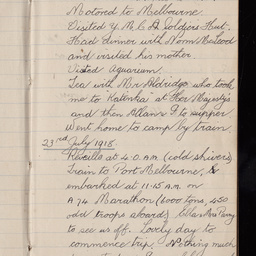 Motored to Melbourne.
Visited Y.M.C.A Soldiers Hut.
Had dinner with Norm McLeod
and visited his mother
Visited Aquarium.
Tea with Mr Aldridge who took
me to "Katinka" at Her Majesty's
and then Allan & I to supper
Went home to camp by train.
23rd July 1918.
Reveille at 4.0 A.M (cold shivers)
Train to Port Melbourne, &
embarked at 11.15 A.M. on
A 74 Marathon (6000 tons, 450
odd troops aboard) Ella Mrs
to see us off. Lovely day to
commence trip. Nothing much